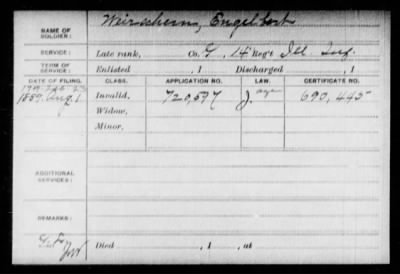 NAME OF SOLDIER: Mirschem, Engelbert
SERVICE: Late rank, Co. G, 14 Reg't Ill Inf.
TERM OF SERVICE: Enlisted , 1 Discharged , 1
DATE OF FILING. CLASS. APPLICATION NO. LAW. CERTIFICATE NO.
1889, Aug. 1 Invalid, 720,597 J. age 690,445
Widow,
Minor,
ADDITIONAL SERVICES:
REMARKS:
Died , 1 , at